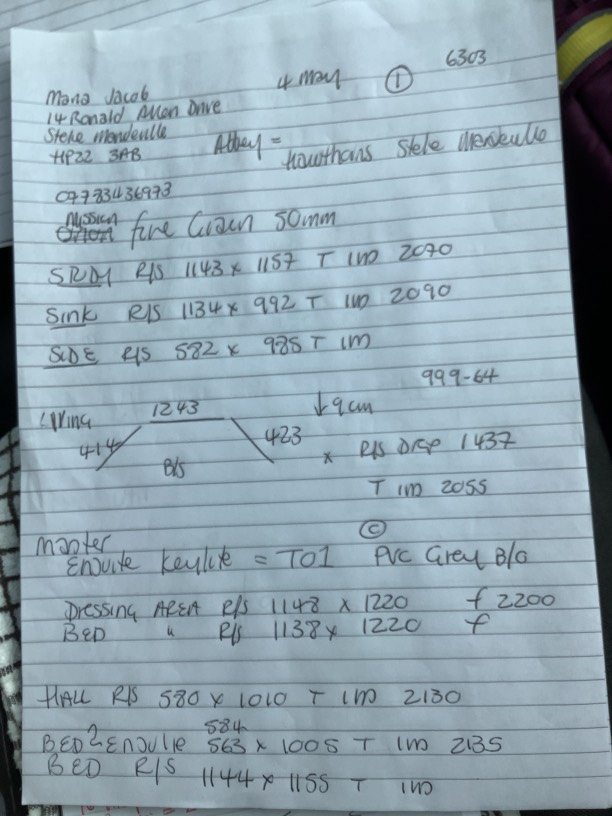 6303
4 May ①
Maria Jacob
14 Ronald Allen Drive
Stoke Mandeville
HP22 3AB
Abbey =
Hawthorns Stoke Mandeville
07783436973
Mission
Orion Fine Grain 50mm
R/S 1143 x 1157 T IM 2070
Sink R/S 1134 x 992 T IM 2090
SIDE R/S 582 x 985 T IM
999-64
Living 1243 ↓9cm
414 423
B/S x R/S DROP 1437
T IM 2055
©
Master
Ensuite Keylite = T01 PVC Grey B/O
Dressing AREA R/S 1148 x 1220 f 2200
BED " R/S 1138 x 1220 f
HALL R/S 580 x 1010 T IM 2130
584
BED 2 ENSUITE 563 x 1005 T IM 2135
BED R/S 1144 x 1155 T IM